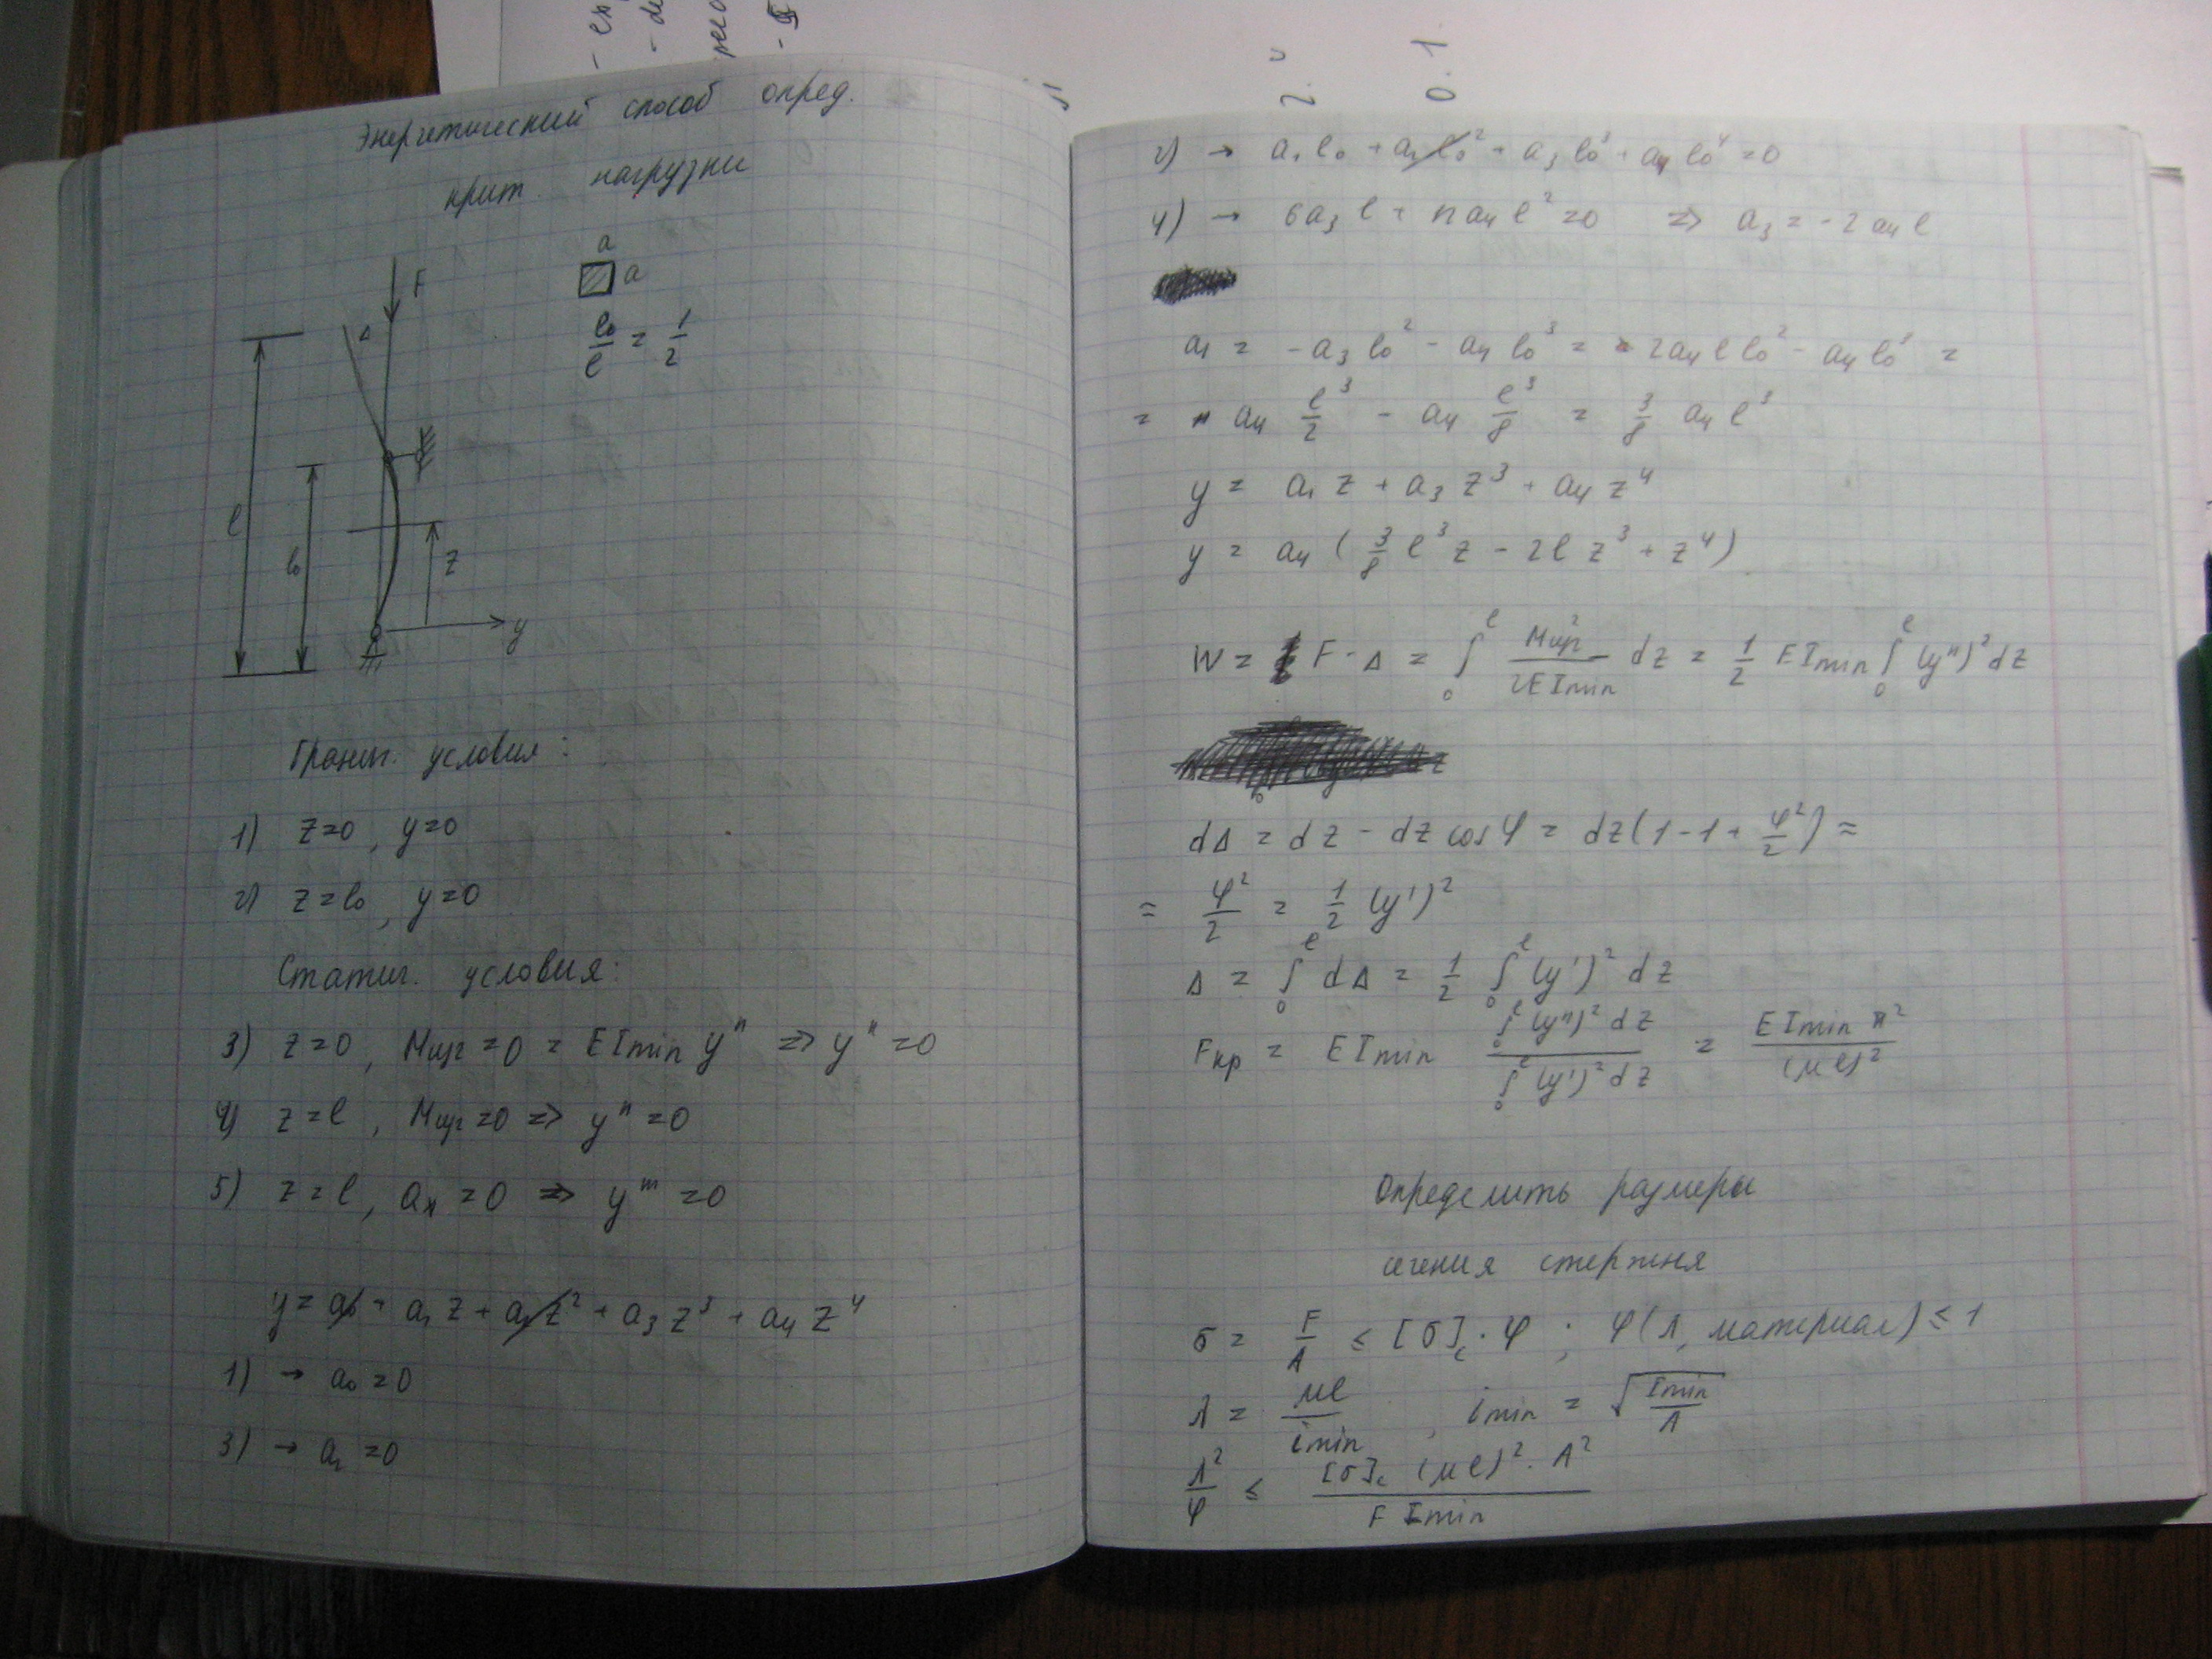 Энергетический способ опред.
крит. нагрузки
a
a
F
Δ
l₀/l = 1/2
l
l₀
z
y
Гранич. условия:
1) z=0, y=0
2) z=l₀, y=0
Статич. условия:
3) z=0, Mизг=0 = EImin y'' => y''=0
4) z=l, Mизг=0 => y''=0
5) z=l, Qx=0 => y'''=0
y = a₀ + a₁z + a₂z² + a₃z³ + a₄z⁴
1) → a₀=0
3) → a₂=0
2) → a₁l₀ + a₂l₀² + a₃l₀³ + a₄l₀⁴ = 0
4) → 6a₃l + 12a₄l² = 0 => a₃ = -2a₄l
a₁ = -a₃l₀² - a₄l₀³ = 2a₄ll₀² - a₄l₀³ =
= a₄ l³/2 - a₄ l³/8 = 3/8 a₄l³
y = a₁z + a₃z³ + a₄z⁴
y = a₄(3/8 l³z - 2lz³ + z⁴)
W = F·Δ = ∫₀ˡ Mизг²/2EImin dz = 1/2 EImin ∫₀ˡ (y'')² dz
dΔ = dz - dz cosφ = dz(1-1+φ²/2) =
= φ²/2 = 1/2 (y')²
Δ = ∫₀ˡ dΔ = 1/2 ∫₀ˡ (y')² dz
Fкр = EImin ∫₀ˡ(y'')²dz / ∫₀ˡ(y')²dz = EImin π²/(μl)²
Определить размеры
сечения стержня
σ = F/A ≤ [σ]c·φ ; φ(λ, материал) ≤ 1
λ = μl/imin , imin = √(Imin/A)
λ²/φ ≤ [σ]c (μl)²·A²/F Imin